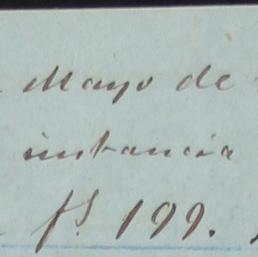 Mayo de
instancia
fs 199.